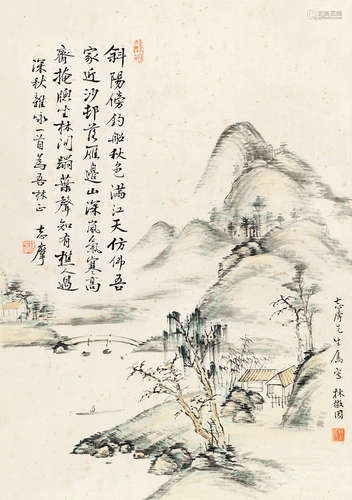 斜陽傍釣船秋色滿江天仿佛吾
家近沙邨落雁邊山深嵐氣寒高
齋掩牕坐林間蹋葉聲知有樵人過
深秋雜咏一首為吾林正
志摩
志摩先生屬字 林徽因